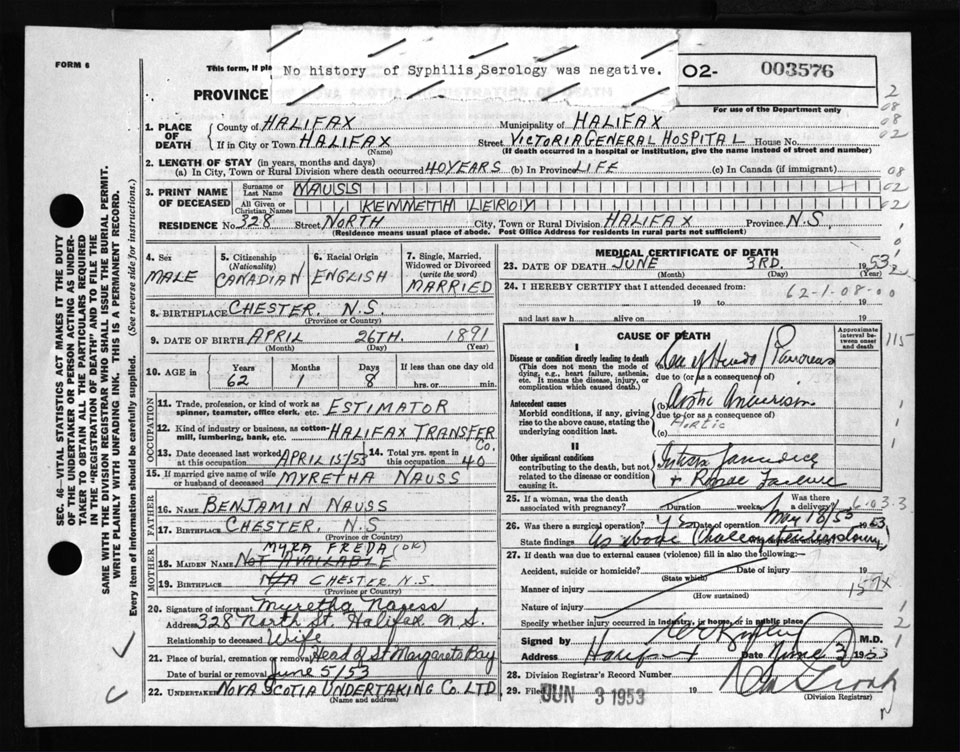 FORM 6
This form, if pla
No history of Syphilis, Serology was negative.
PROVINCE
02- 003576
For use of the Department only
1. PLACE OF DEATH
County of HALIFAX Municipality of HALIFAX
If in City or Town HALIFAX (Name) Street VICTORIA GENERAL HOSPITAL House No.
(If death occurred in a hospital or institution, give the name instead of street and number)
2. LENGTH OF STAY (in years, months and days)
(a) In City, Town or Rural Division where death occurred 40 YEARS (b) In Province LIFE (c) In Canada (if immigrant)
3. PRINT NAME OF DECEASED
Surname or Last Name NAUSS
All Given or Christian Names KENNETH LEROY
RESIDENCE No. 328 Street NORTH City, Town or Rural Division HALIFAX Province N.S
(Residence means usual place of abode. Post Office Address for residents in rural parts not sufficient)
4. Sex MALE
5. Citizenship (Nationality) CANADIAN
6. Racial Origin ENGLISH
7. Single, Married, Widowed or Divorced (write the word) MARRIED
8. BIRTHPLACE CHESTER. N.S.
(Province or Country)
9. DATE OF BIRTH APRIL 26TH. 1891
(Month) (Day) (Year)
10. AGE in Years 62 Months 1 Days 8 If less than one day old
hrs. or min.
OCCUPATION
11. Trade, profession, or kind of work as spinner, teamster, office clerk, etc. ESTIMATOR
12. Kind of industry or business, as cotton-mill, lumbering, bank, etc. HALIFAX TRANSFER Co.
13. Date deceased last worked at this occupation APRIL 15/53 14. Total yrs. spent in this occupation 40
15. If married give name of wife or husband of deceased MYRETHA NAUSS
FATHER
16. Name BENJAMIN NAUSS
17. Birthplace CHESTER. N.S
(Province or Country)
MOTHER
MYRA FREDA (OK)
18. Maiden Name NOT AVAILABLE
19. Birthplace N/A CHESTER N.S.
(Province or Country)
20. Signature of informant Myretha Nauss
Address 328 North St. Halifax N.S.
Relationship to deceased Wife
21. Place of burial, cremation or removal Head of St Margarets Bay
Date of burial or removal June 5/53
22. UNDERTAKER NOVA SCOTIA UNDERTAKING CO. LTD
(Name and address)
MEDICAL CERTIFICATE OF DEATH
23. DATE OF DEATH JUNE 3RD 1953
(Month) (Day) (Year)
24. I HEREBY CERTIFY that I attended deceased from:
62-1-08-00
19 to 19
and last saw h alive on 19
CAUSE OF DEATH
Approximate interval between onset and death
I
Disease or condition directly leading to death
(This does not mean the mode of dying, e.g., heart failure, asthenia, etc. It means the disease, injury, or complication which caused death.)
(a) Pancreas
due to (or as a consequence of)
Antecedent causes
Morbid conditions, if any, giving rise to the above cause, stating the underlying condition last.
(b)
due to (or as a consequence of)
Aortic
(c)
II
Other significant conditions
contributing to the death, but not related to the disease or condition causing it.
25. If a woman, was the death associated with pregnancy? Duration weeks Was there a delivery?
6-03.3
26. Was there a surgical operation? yes Date of operation May 18/53 1953
State findings as above
27. If death was due to external causes (violence) fill in also the following:—
Accident, suicide or homicide? (State which) Date of injury 19
Manner of injury
(How sustained)
157X
Nature of injury
Specify whether injury occurred in industry, in home, or in public place
Signed by M.D.
Address Halifax Date June 3 1953
28. Division Registrar's Record Number
29. Filed JUN 3 1953 19
(Division Registrar)
SEC. 46—VITAL STATISTICS ACT MAKES IT THE DUTY OF THE UNDERTAKER OR PERSON ACTING AS UNDERTAKER TO OBTAIN ALL THE PARTICULARS REQUIRED IN THE "REGISTRATION OF DEATH" AND TO FILE THE SAME WITH THE DIVISION REGISTRAR WHO SHALL ISSUE THE BURIAL PERMIT.
WRITE PLAINLY WITH UNFADING INK. THIS IS A PERMANENT RECORD.
Every item of information should be carefully supplied. (See reverse side for instructions.)
2
08
08
02
08
02
02
115